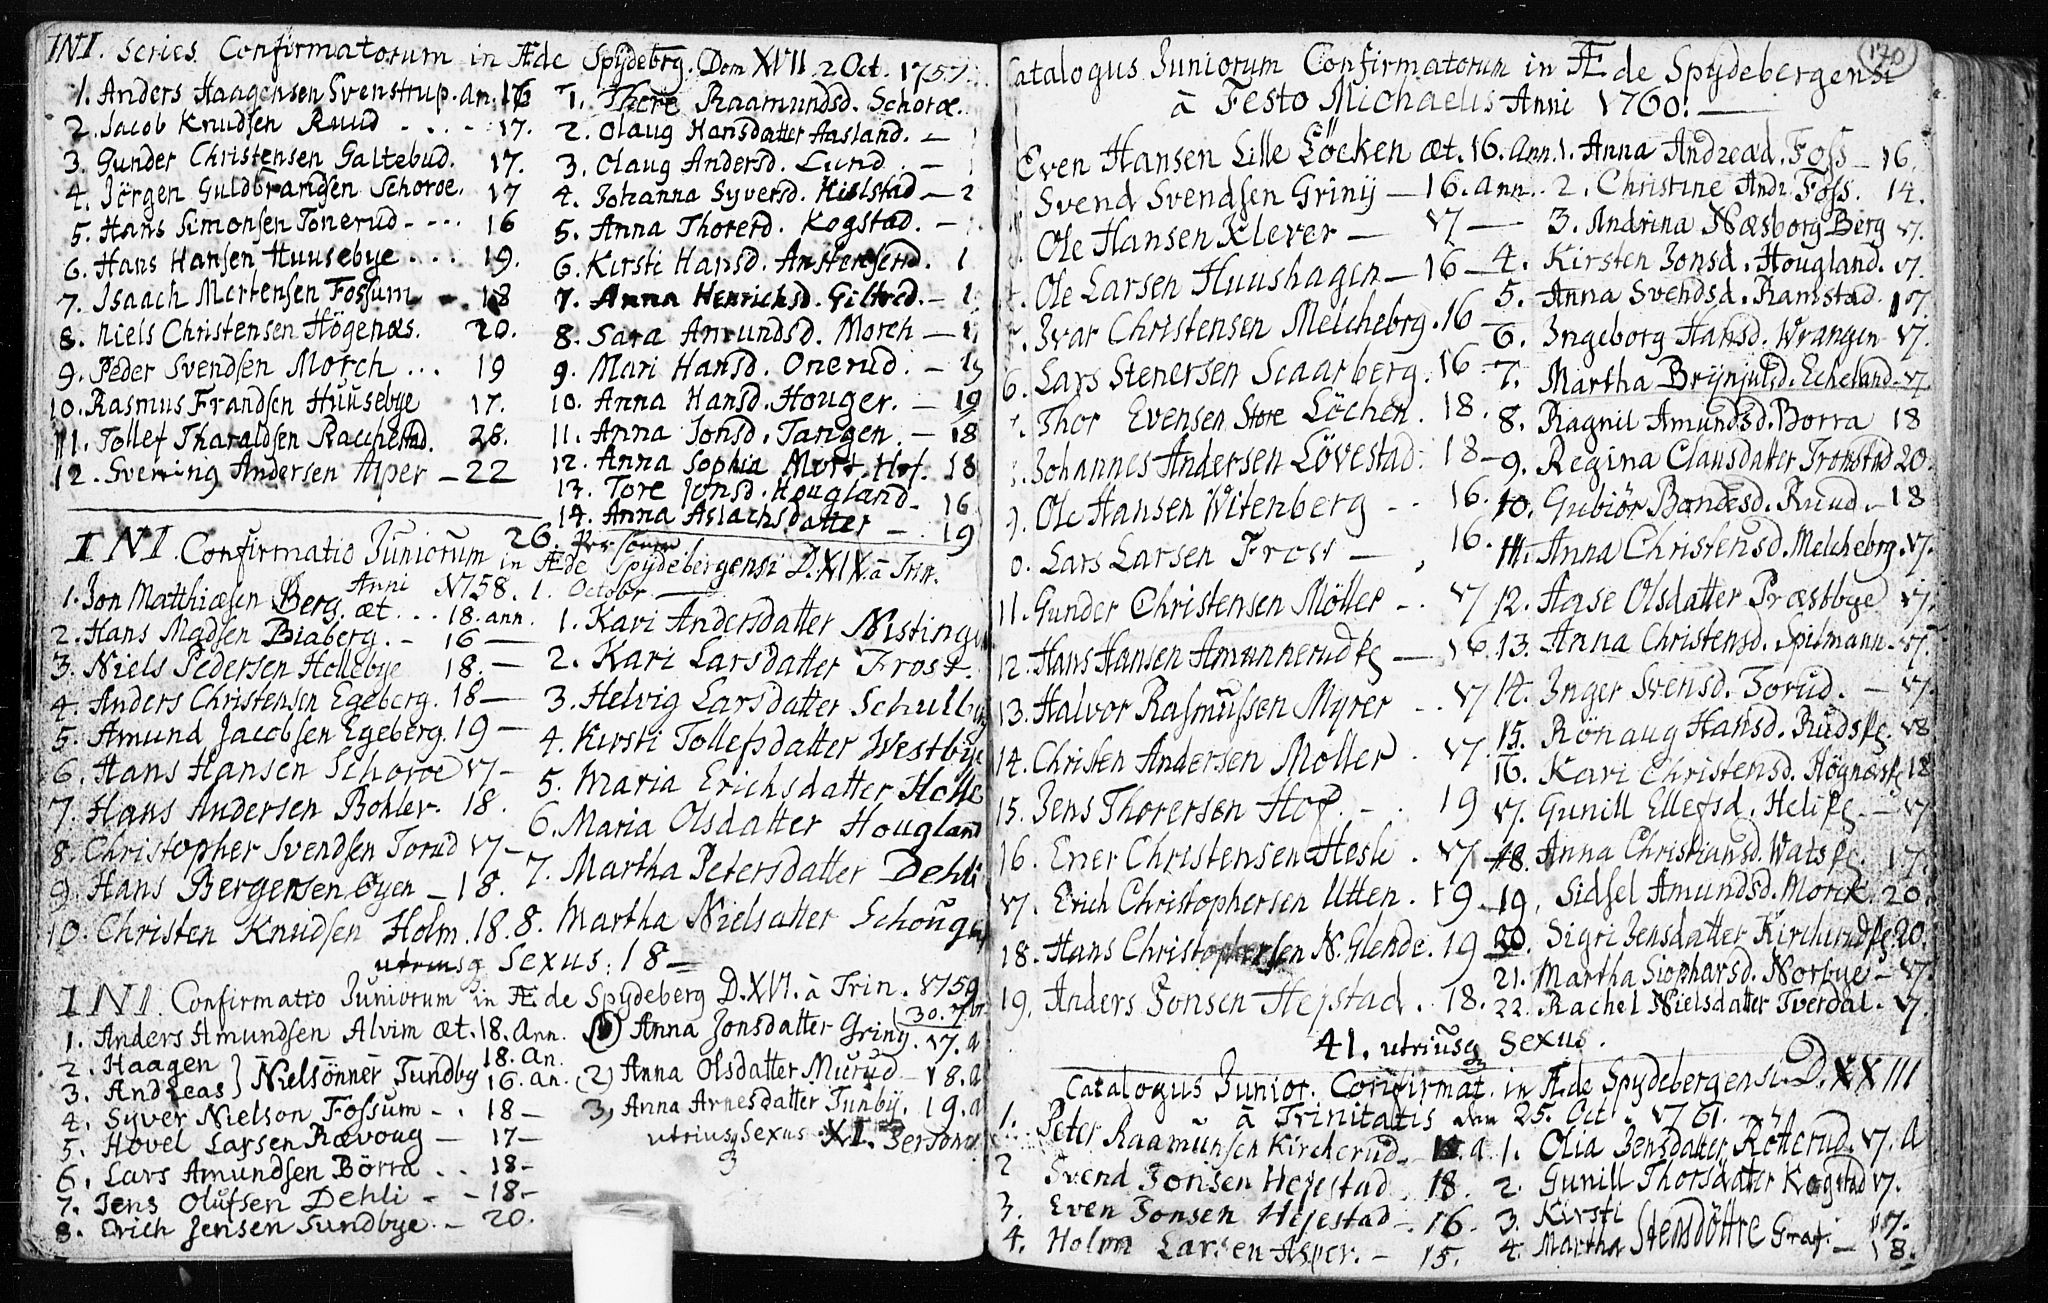 INI. Series Confirmatorum in Æde Spydebrg. Dom XVII 2 Oct. 1757.
1. Anders Haagensen Svenstrup. an. 16
2. Jacob Knudsen Ruud - . . - 17.
3. Gunder Christensen Galtebud. 17.
4. Jörgen Guldbrandsen Schoroe. 17
5. Hans Simonsen Tonerud - . . . 16
6. Hans Hansen Huusebye . . . 19.
7. Isaach Mortensen Fossum 18
8. Niels Christensen Högenæs. 20.
9. Peder Svendsen Morch . . . 19
10. Rasmus Frandsen Huusebye 17.
11. Tollef Tharaldsen Racchestad. 28.
12. Svening Andersen Asper - 22
1. There Raamundsd. Schoroe.
2. Olaug Hansdatter Aasland. -
3. Olaug Andersd. Lund -
4. Johanna Syversd. Hielstad - 2
5. Anna Thorerd. Kogstad. -
6. Kirsti Hansd. 1
7. Anna Henrichsd. - 1
8. Sara Amundsd. Morch - 1
9. Mari Hansd. Onerud. - 19
10. Anna Hansd. Houger. - 19
11. Anna Jonsd. Tangen. - 18
12. Anna Sophia Hof. 18
13. Tore Jonsd. Hougland - 16
14. Anna Aslachsdatter - 19
26. Persone
INI. Confirmatio Juniorum in Æde Spydebergensi D. XIX. à Trin.
Anni 1758. 1. October
1. Jon Matthiæsen Berg. æt. . . 18. ann.
2. Hans Madsen Biaberg. - 16 -
3. Niels Pedersen Hollebye 18. -
4. Anders Christensen Egeberg. 18 -
5. Amund Jacobsen Egeberg. 19 -
6. Hans Hansen Schoroe 17 -
7. Hans Andersen Bohler. 18.
8. Christopher Svendsen Torud 17 -
9. Hans Bergersen Öyen - 18.
10. Christen Knudsen Holm. 18.
1. Kari Andersdatter
2. Kari Larsdatter Frost.
3. Helvig Larsdatter
4. Kirsti Tollefsdatter Westbye
5. Maria Erichsdatter Holle
6. Maria Olsdatter Hougland
7. Martha Petersdatter Dehli
8. Martha Nielsatter
utriusq Sexus: 18 -
INI. Confirmatio Juniorum in Æde Spydeberg D. XVI. à Trin. 1759
30. 7br
1. Anders Amundsen Alvim æt. 18. Ann.
2. Haagen } 18. An.
3. Andreas } Nielsönner Tundby 16. an.
4. Syver Nielson Fossum - . 18 -
5. Hovel Larsen Rævoug - 17 -
6. Lars Amundsen Börra . . 18 -
7. Jens Olufsen Dehli - - 18 -
8. Erich Jensen Tundbye. - 20.
1) Anna Jonsdatter Griny. 17. a
2) Anna Olsdatter Murud - 18. a
3) Anna Arnesdatter Tunby. 19. a
utriusq Sexus XI. Persone
170
Catalogus Juniorum Confirmatorum in Æde Spydebergensi
à Festo Michaelis Anni 1760.
Even Hansen Lille Löcken æt. 16. ann.
Svend Svendsen Griny - 16. ann.
Ole Hansen Klever - 17 -
Ole Larsen Huushagen - 16 -
Ivar Christensen Melchebrg. 16 -
6. Lars Stenersen Scaarberg. 16 -
Thor Evensen Store Löchen. 18.
Johannes Andersen Lövestad. 18 -
9. Ole Hansen Witenberg - . 16.
0. Lars Larsen Frost - , 16.
11. Gunder Christensen Möller - . 17
12. Hans Hansen - 16.
13. Halvor Rasmussen Myrer - . 17
14. Christen Andersen Moller . 17.
15. Jens Thorersen Hof. - . 19
16. Ener Christensen Hesle . 17
17. Erich Christophersen Utten. 19
18. Hans Christophersen N. Glende. 19
19. Anders Jonsen Hejstad . 18.
1. Anna Andreæd. Foss - 16.
2. Christine Andr. Foss. 14.
3. Andrina Næsborg Berg 17.
4. Kirsten Jonsd. Hougland. 17.
5. Anna Svendsd. Ramstad. 17.
6. Ingeborg Hansd. Wrangen 17.
7. Martha Brynjulsd. Echeland. 17.
8. Ragnil Amundsd. Borra 18
9. Regina Clausdatter Tronstad 20.
10. Gubiör Bondesd. Ruud - 18
11. Anna Christensd. Melchebrg. 17.
12. Aase Olsdatter Præstbye 17.
13. Anna Christensd. Spilmann. 17.
14. Inger Svensd. Torud. - 17.
15. Rönaug Hansd. 18
16. Kari Christensd. 18
17. Gunill Ellefsd. - 17
18. Anna Christiansd. 17.
19. Sidsel Amundsd. Morck. 20.
20. Sigri Jensdatter 20.
21. Martha Siophersd. Norbye - 17.
22. Rachel Nielsdatter Tverdal. 17.
41. utriusq Sexus.
Catalogus Junior. Confirmat. in Æde Spydebergensi. D. XXIII
à Trinitatis den 25. Oct. 1761.
1. Peter Raamunsen Kircherud - a
2 Svend Jonsen Hejestad 18.
3. Even Jonsen Hejestad - 16.
4. Holm Larsen Asper. - 15.
1. Olia Jensdatter Rötterud. 17. a
2. Gunill Thorsdatter Kogstad 17.
3. Kirsti 17.
4. Martha Stensdöttre Graf. - 18.